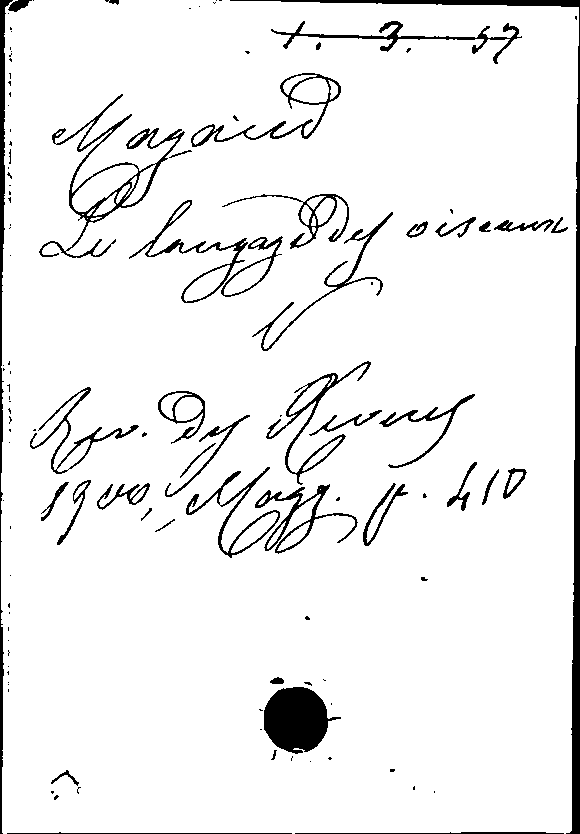 1. 3. 57
Magaud
Le langage des oiseaux
V
Rev. des Revues
1900, Magg. p. 410